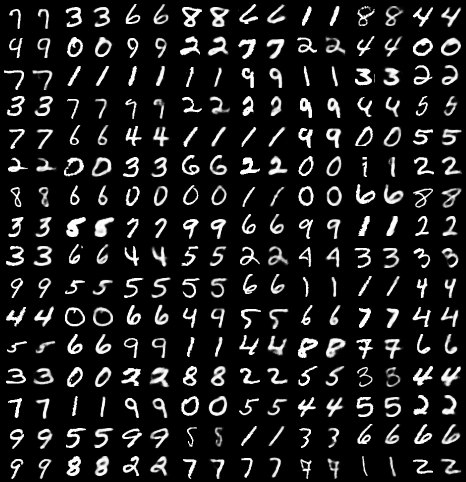 7 7 3 3 6 6 8 8 6 6 1 1 8 8 4 4
9 9 0 0 9 9 2 2 7 7 2 2 4 4 0 0
7 7 1 1 1 1 1 1 9 9 1 1 3 3 2 2
3 3 7 7 9 9 2 2 2 2 9 9 4 4 5 5
7 7 6 6 4 4 1 1 1 1 9 9 0 0 5 5
2 2 0 0 3 3 6 6 2 2 0 0 1 1 2 2
8 8 6 6 0 0 0 0 1 1 0 0 6 6 8 8
3 3 5 5 7 7 9 9 6 6 9 9 1 1 2 2
3 3 6 6 4 4 5 5 2 2 4 4 3 3 3 3
9 9 5 5 5 5 5 5 6 6 1 1 1 1 4 4
4 4 0 0 6 6 4 9 5 5 6 6 7 7 4 4
5 5 6 6 9 9 1 1 4 4 8 8 7 7 6 6
3 3 0 0 2 2 8 8 2 2 5 5 3 3 4 4
7 7 1 1 9 9 0 0 5 5 4 4 5 5 2 2
9 9 5 5 9 9 5 5 1 1 3 3 6 6 6 6
9 9 8 8 2 2 7 7 7 7 7 7 1 1 2 2